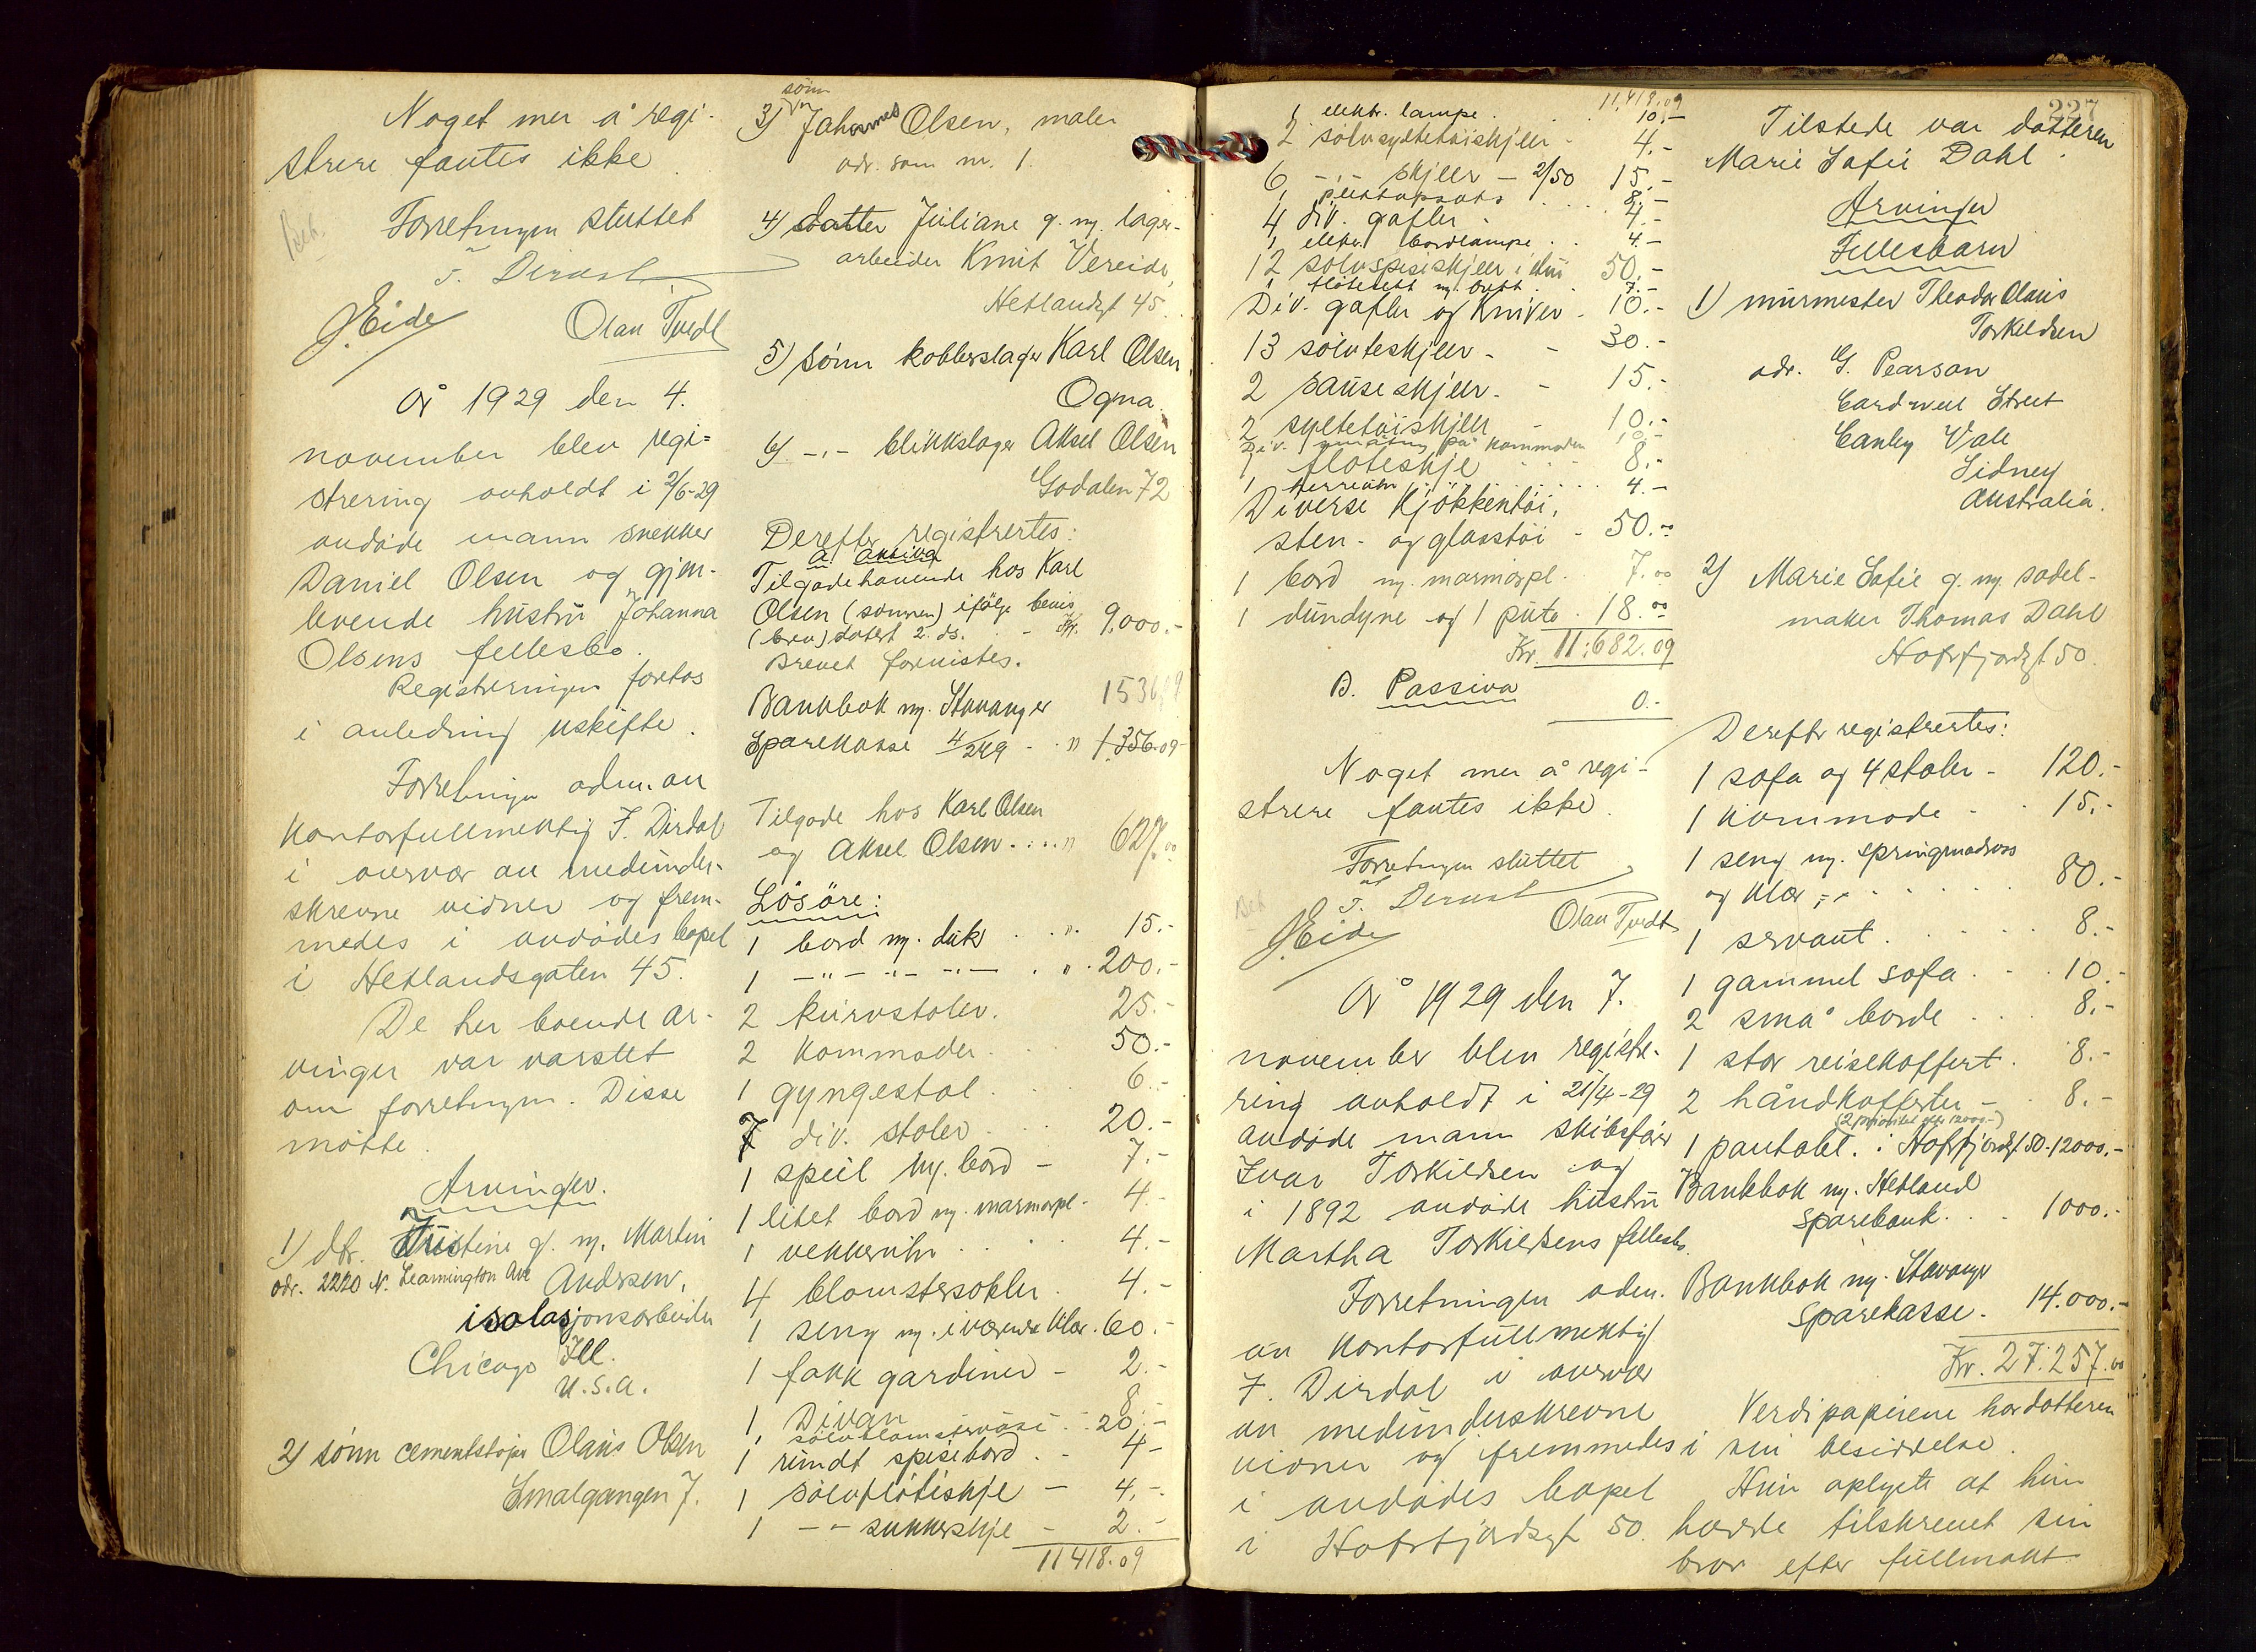 Noget mer å regi-
strere fantes ikke.
Forretningen sluttet
F. Dirdal
J. Eide
Olav Tvedt
År 1929 den 4.
november blev regi=
strering avholdt i 2/6-29
avdøde mann snekker
Daniel Olsen og gjen-
levende hustru Johanna
Olsens fellesbo.
Registreringen foretas
i anledning uskifte.
Forretningen adm. av
kontorfullmektig F. Dirdal
i overvær av medunder-
skrevne vidner og frem-
medes i avdødes bopel
i Hetlandsgaten 45.
De her boende ar-
vinger var varslet
om forretningen. Disse
møtte.
Arvinger.
1) dtr. Kristine g. m. Martin
adr. 2220 N. Leamington Ave Andersen,
isolasjonsarbeider
Chicago Ill.
U.S.A.
2) sønn cementstøper Olaus Olsen
Smalgangen 7.
sønn
3) Johannes Olsen, maler
adr. som nr. 1.
4) datter Juliane g. m. lager-
arbeider Knut Vereide,
Hetlandsgt 45.
5) sønn kobberslager Karl Olsen,
Ogna.
6) -,,- blikkslager Aksel Olsen
Godalen 72
Derefter registrertes:
A. Aktiva
Tilgodehavende hos Karl
Olsen (sønnen) ifølge bevis
(brev) datert 2. ds. - Kr. 9,000.-
Brevet forevistes.
Bankbok m. Stavanger
Sparekasse 4/249 - " 1.356.09
Tilgode hos Karl Olsen
og Aksel Olsen . . . . " 627.00
Løsøre:
1 bord m. duk . . ". 15.-
1 -"- -"- -"- . ". 200.-
2 kurvstoler. 25.-
2 kommoder. 50.-
1 gyngestol. 6.-
7 div. stoler 20.-
1 speil m. bord - 7.-
1 litet bord m. marmorpl. 4.-
1 vekkerur . . . 4.-
4 blomstersokler. 4.-
1 seng m. iværende klær. 60.-
1 fakk gardiner - 2.-
1 Divan 8.-
1 sølvblomstervase . 20.-
1 rundt spisebord . - 4.-
1 sølvfløteskje - 4.-
1 -"- sukkerskje - 2.-
11418.09
11,418.09
1 elektr. lampe . . 10.-
2 sølvsyltetøiskjeer - 4.-
6 -"- skjeer - 2/50 15.-
1 . . . 8.-
4 div. gafler . 4.-
1 elektr. bordlampe . . 4.-
12 sølvspiseskjeer i etui 50.-
1 fløtesett m. brett . . 7.-
Div. gafler og kniver - 10.-
13 sølvteskjeer - - 30.-
2 sauseskjeer. - 15.-
2 syltetøiskjeer - 10.-
Div. småting på kommoden 10.-
1 fløteskje . . . 8.-
1 herreur . . . . 4.-
Diverse kjøkkentøi,
sten- og glasstøi - 50.00
1 bord m. marmorpl. 7.00
1 dundyne og 1 pute 18.00
Kr. 11:682.09
B. Passiva 0.-
Noget mer å regi-
strere fantes ikke.
Forretningen sluttet
F. Dirdal
J. Eide
Olav Tvedt
År 1929 den 7.
november blev registre-
ring avholdt i 21/4-29
avdøde mann skibsfører
Ivar Torkildsen og
i 1892 avdøde hustru
Martha Torkildsens fellesbo.
Forretningen adm.
av kontorfullmektig
F. Dirdal i overvær
av medunderskrevne
vidner og fremmedes
i avdødes bopel
i Hafrsfjordsgt 50.
227
Tilstede var datteren
Marie Sofie Dahl.
Arvinger
Fellesbarn
1) murmester Theodor Olaus
Torkildsen
adr. G. Pearson
Cardwell Street
Canley Vale
Sidney
Australia.
2) Marie Sofie g. m. sadel-
maker Thomas Dahl
Hafrsfjordsgt 50.
Derefter registrertes:
1 sofa og 4 stoler - 120.-
1 kommode - . 15.-
1 seng m. springmadrass
og klær . . . . 80.-
1 servant . . . . 8.-
1 gammel sofa . . . 10.-
2 små borde . . . 8.-
1 stor reisekoffert . 8.-
2 håndkofferter - . 8.-
(2 prioritet efter 12000.-)
1 pantobl. i Hafrsfjordsgt 50 - 12000.-
Bankbok m. Hetland
Sparebank . . . 1000.-
Bankbok m. Stavanger
Sparekasse . 14.000.-
Kr. 27.257.00
Verdipapirene har datteren
i sin besiddelse.
Hun oplyste at hun
hadde tilskrevet sin
bror efter fullmakt